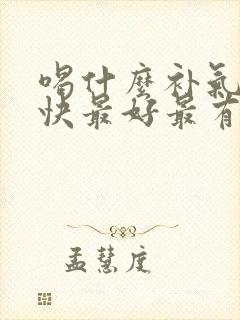 喝什麼补氣
快最好最有
孟慧庭